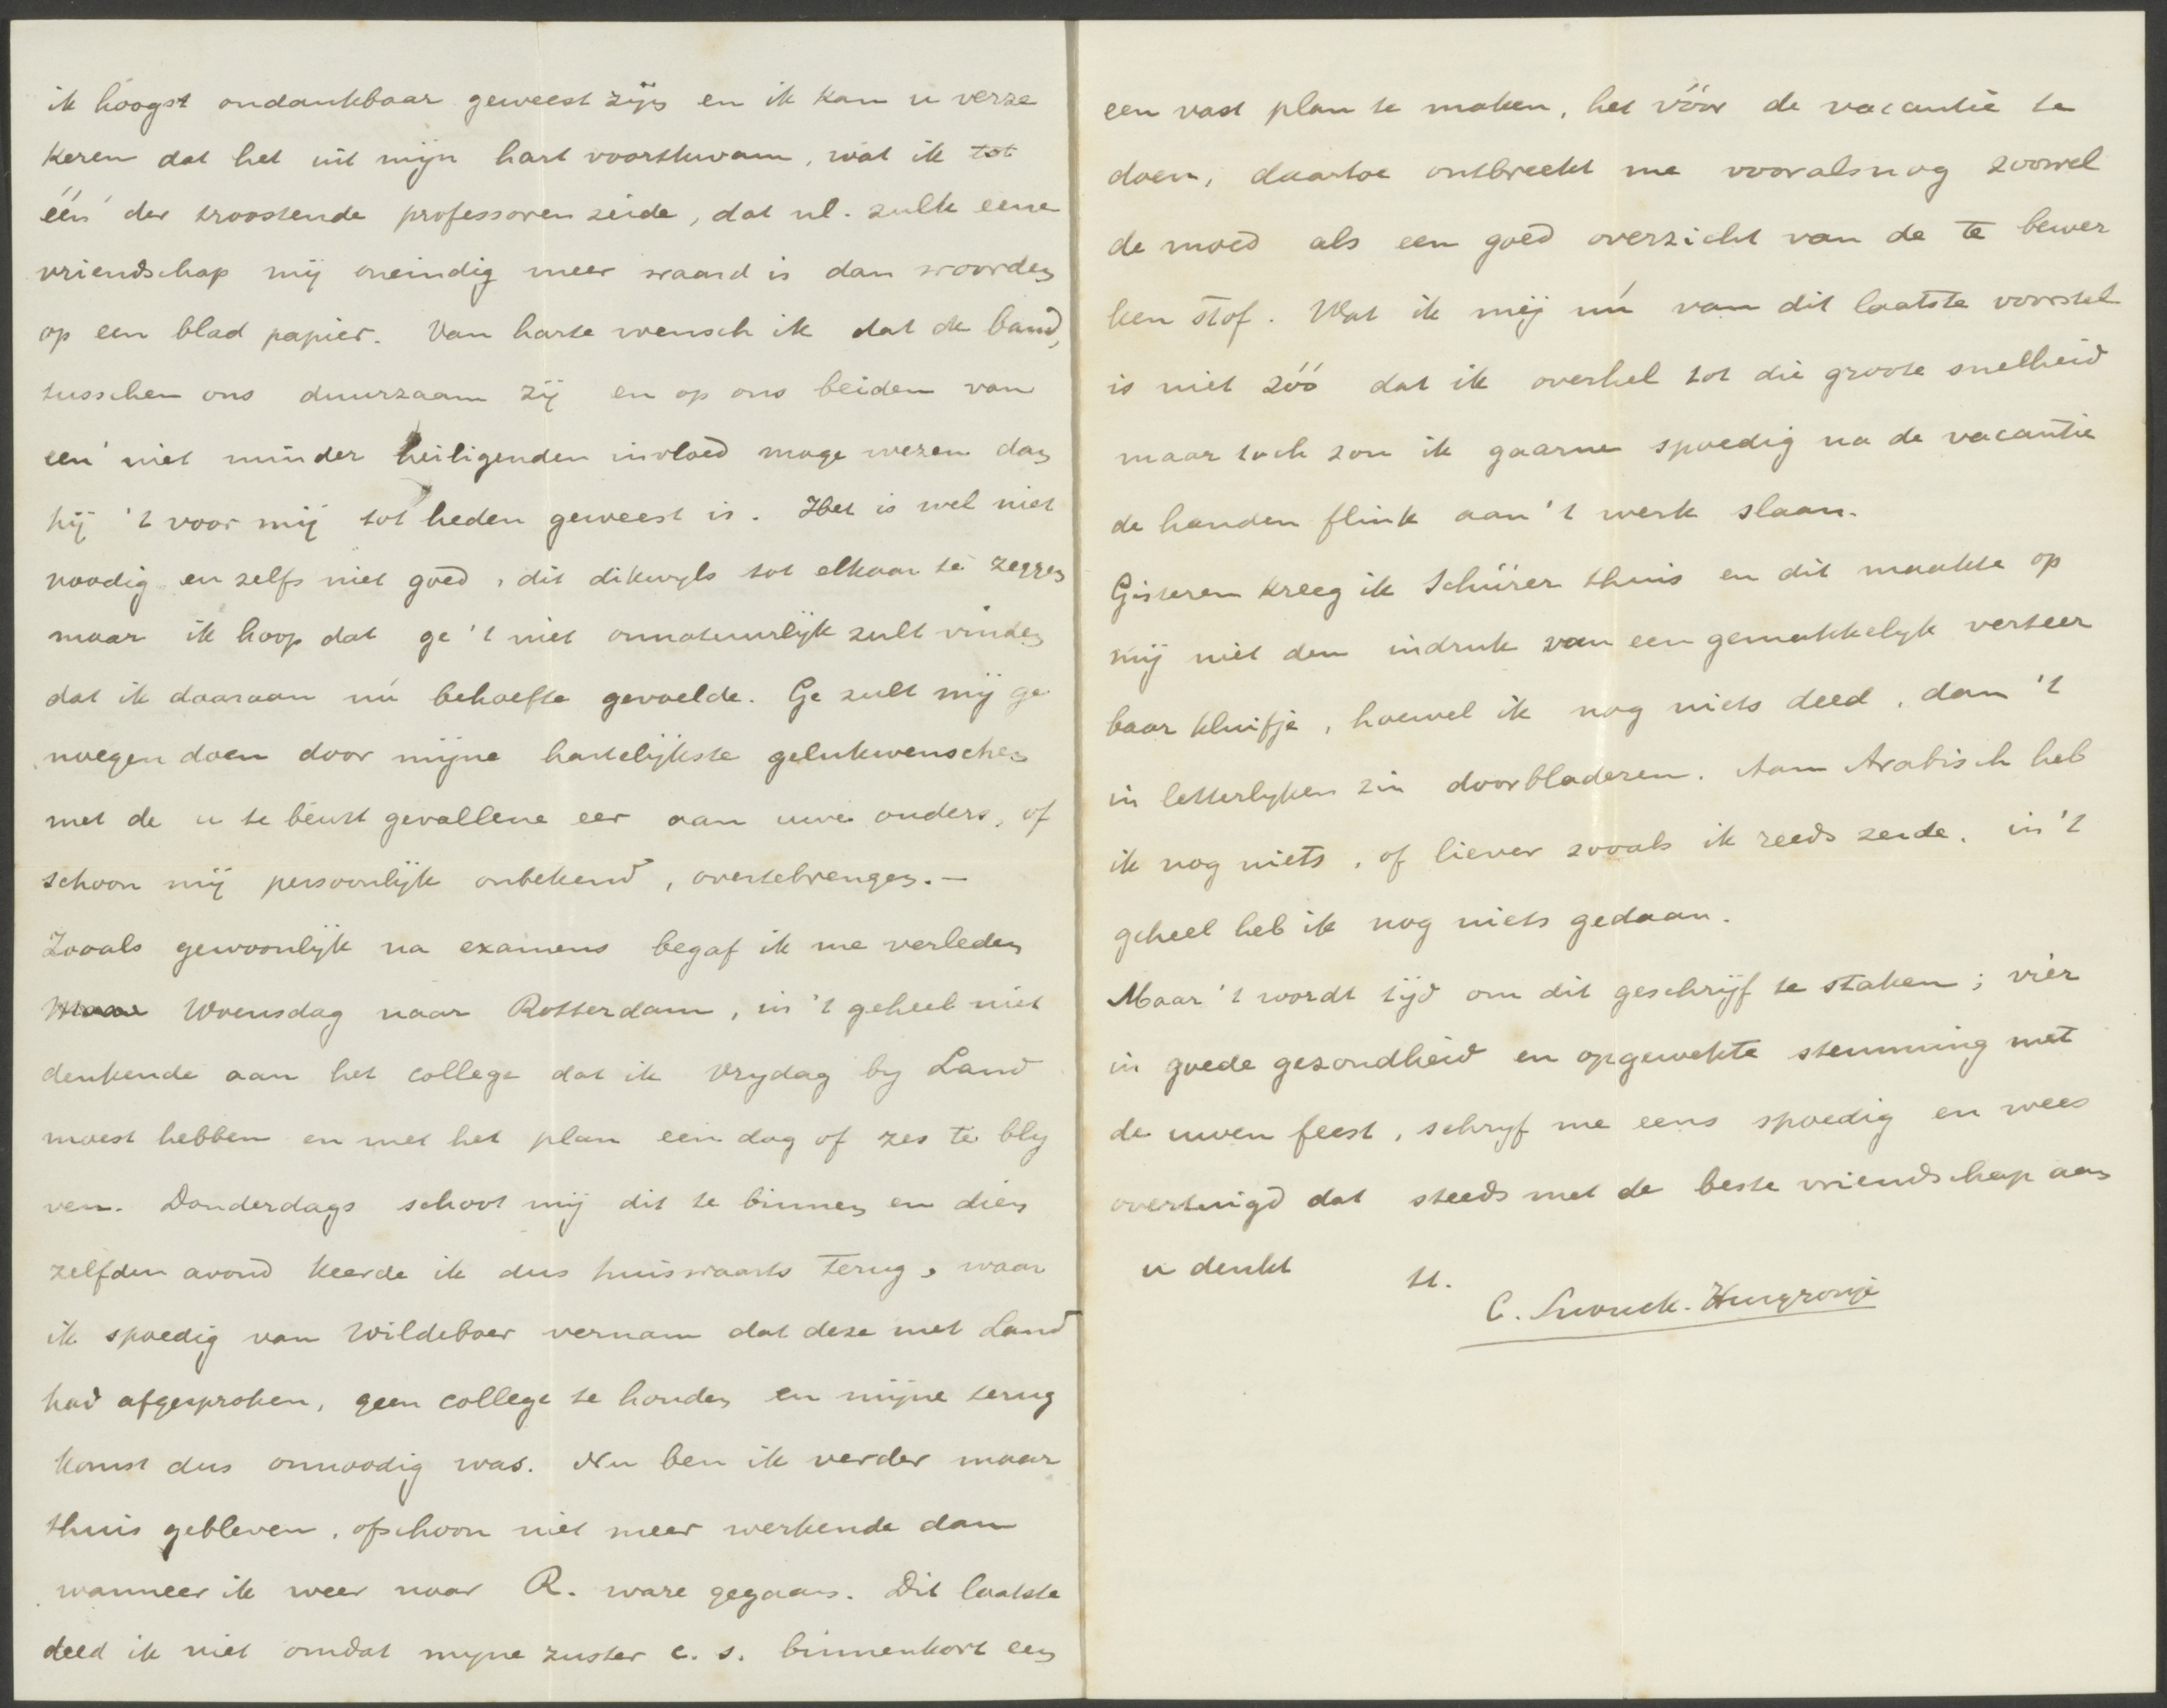 ik hoogst ondankbaar geweest zijn en ik kan u verze
keren dat het uit mijn hart voortkwam, wat ik tot
één der troostende professoren zeide, dat nl. zulk eene
vriendschap mij oneindig meer waard is dan woorden
op een blad papier. Van harte wensch ik dat de band,
tusschen ons duurzaam zij en op ons beiden van
een niet minder heiligenden invloed moge wezen dan
hij 't voor mij tot heden geweest is. Het is wel niet
noodig en zelfs niet goed, dit dikwyls tot elkaar te zeggen
maar ik hoop dat ge 't niet onnatuurlijk zult vinden
dat ik daaraan nú behoefte gevoelde. Ge zult mij ge
noegen doen door mijne hartelijkste gelukwenschen
met de u te beurt gevallene eer aan uwe ouders, of
schoon mij persoonlijk onbekend, overtebrengen.—
Zooals gewoonlijk na examens begaf ik me verleden
Woensdag naar Rotterdam, in 't geheel niet
denkende aan het college dat ik Vrydag by Land
moest hebben en met het plan een dag of zes te bly
ven. Donderdags schoot mij dit te binnen en dien
zelfden avond keerde ik dus huiswaarts terug, waar
ik spoedig van Wildeboer vernam dat deze met Land
had afgesproken, geen college te houden en mijne terug
komst dus onnoodig was. Nu ben ik verder maar
thuis gebleven, ofschoon niet meer werkende dan
wanneer ik weer naar R. ware gegaan. Dit laatste
deed ik niet omdat myne zuster c. s. binnenkort een
een vast plan te maken, het vóór de vacantie te
doen, daartoe ontbreekt me vooralsnog zoowel
de moed als een goed overzicht van de te bewer
ken stof. Wat ik mij nú van dit laatste voorstel
is niet zóó dat ik overhel tot die groote snelheid
maar toch zou ik gaarne spoedig na de vacantie
de handen flink aan 't werk slaan.
Gisteren kreeg ik Schürer thuis en dit maakte op
mij niet den indruk van een gemakkelyk verteer
baar kluifje, hoewel ik nog niets deed, dan 't
in letterlyken zin doorbladeren. Aan Arabisch heb
ik nog niets, of liever zooals ik reeds zeide, in 't
geheel heb ik nog niets gedaan.
Maar 't wordt tijd om dit geschrijf te staken; vier
in goede gezondheid en opgewekte stemming met
de uwen feest, schryf me eens spoedig en wees
overtuigd dat steeds met de beste vriendschap aan
u denkt tt.
C. Snouck. Hurgronje